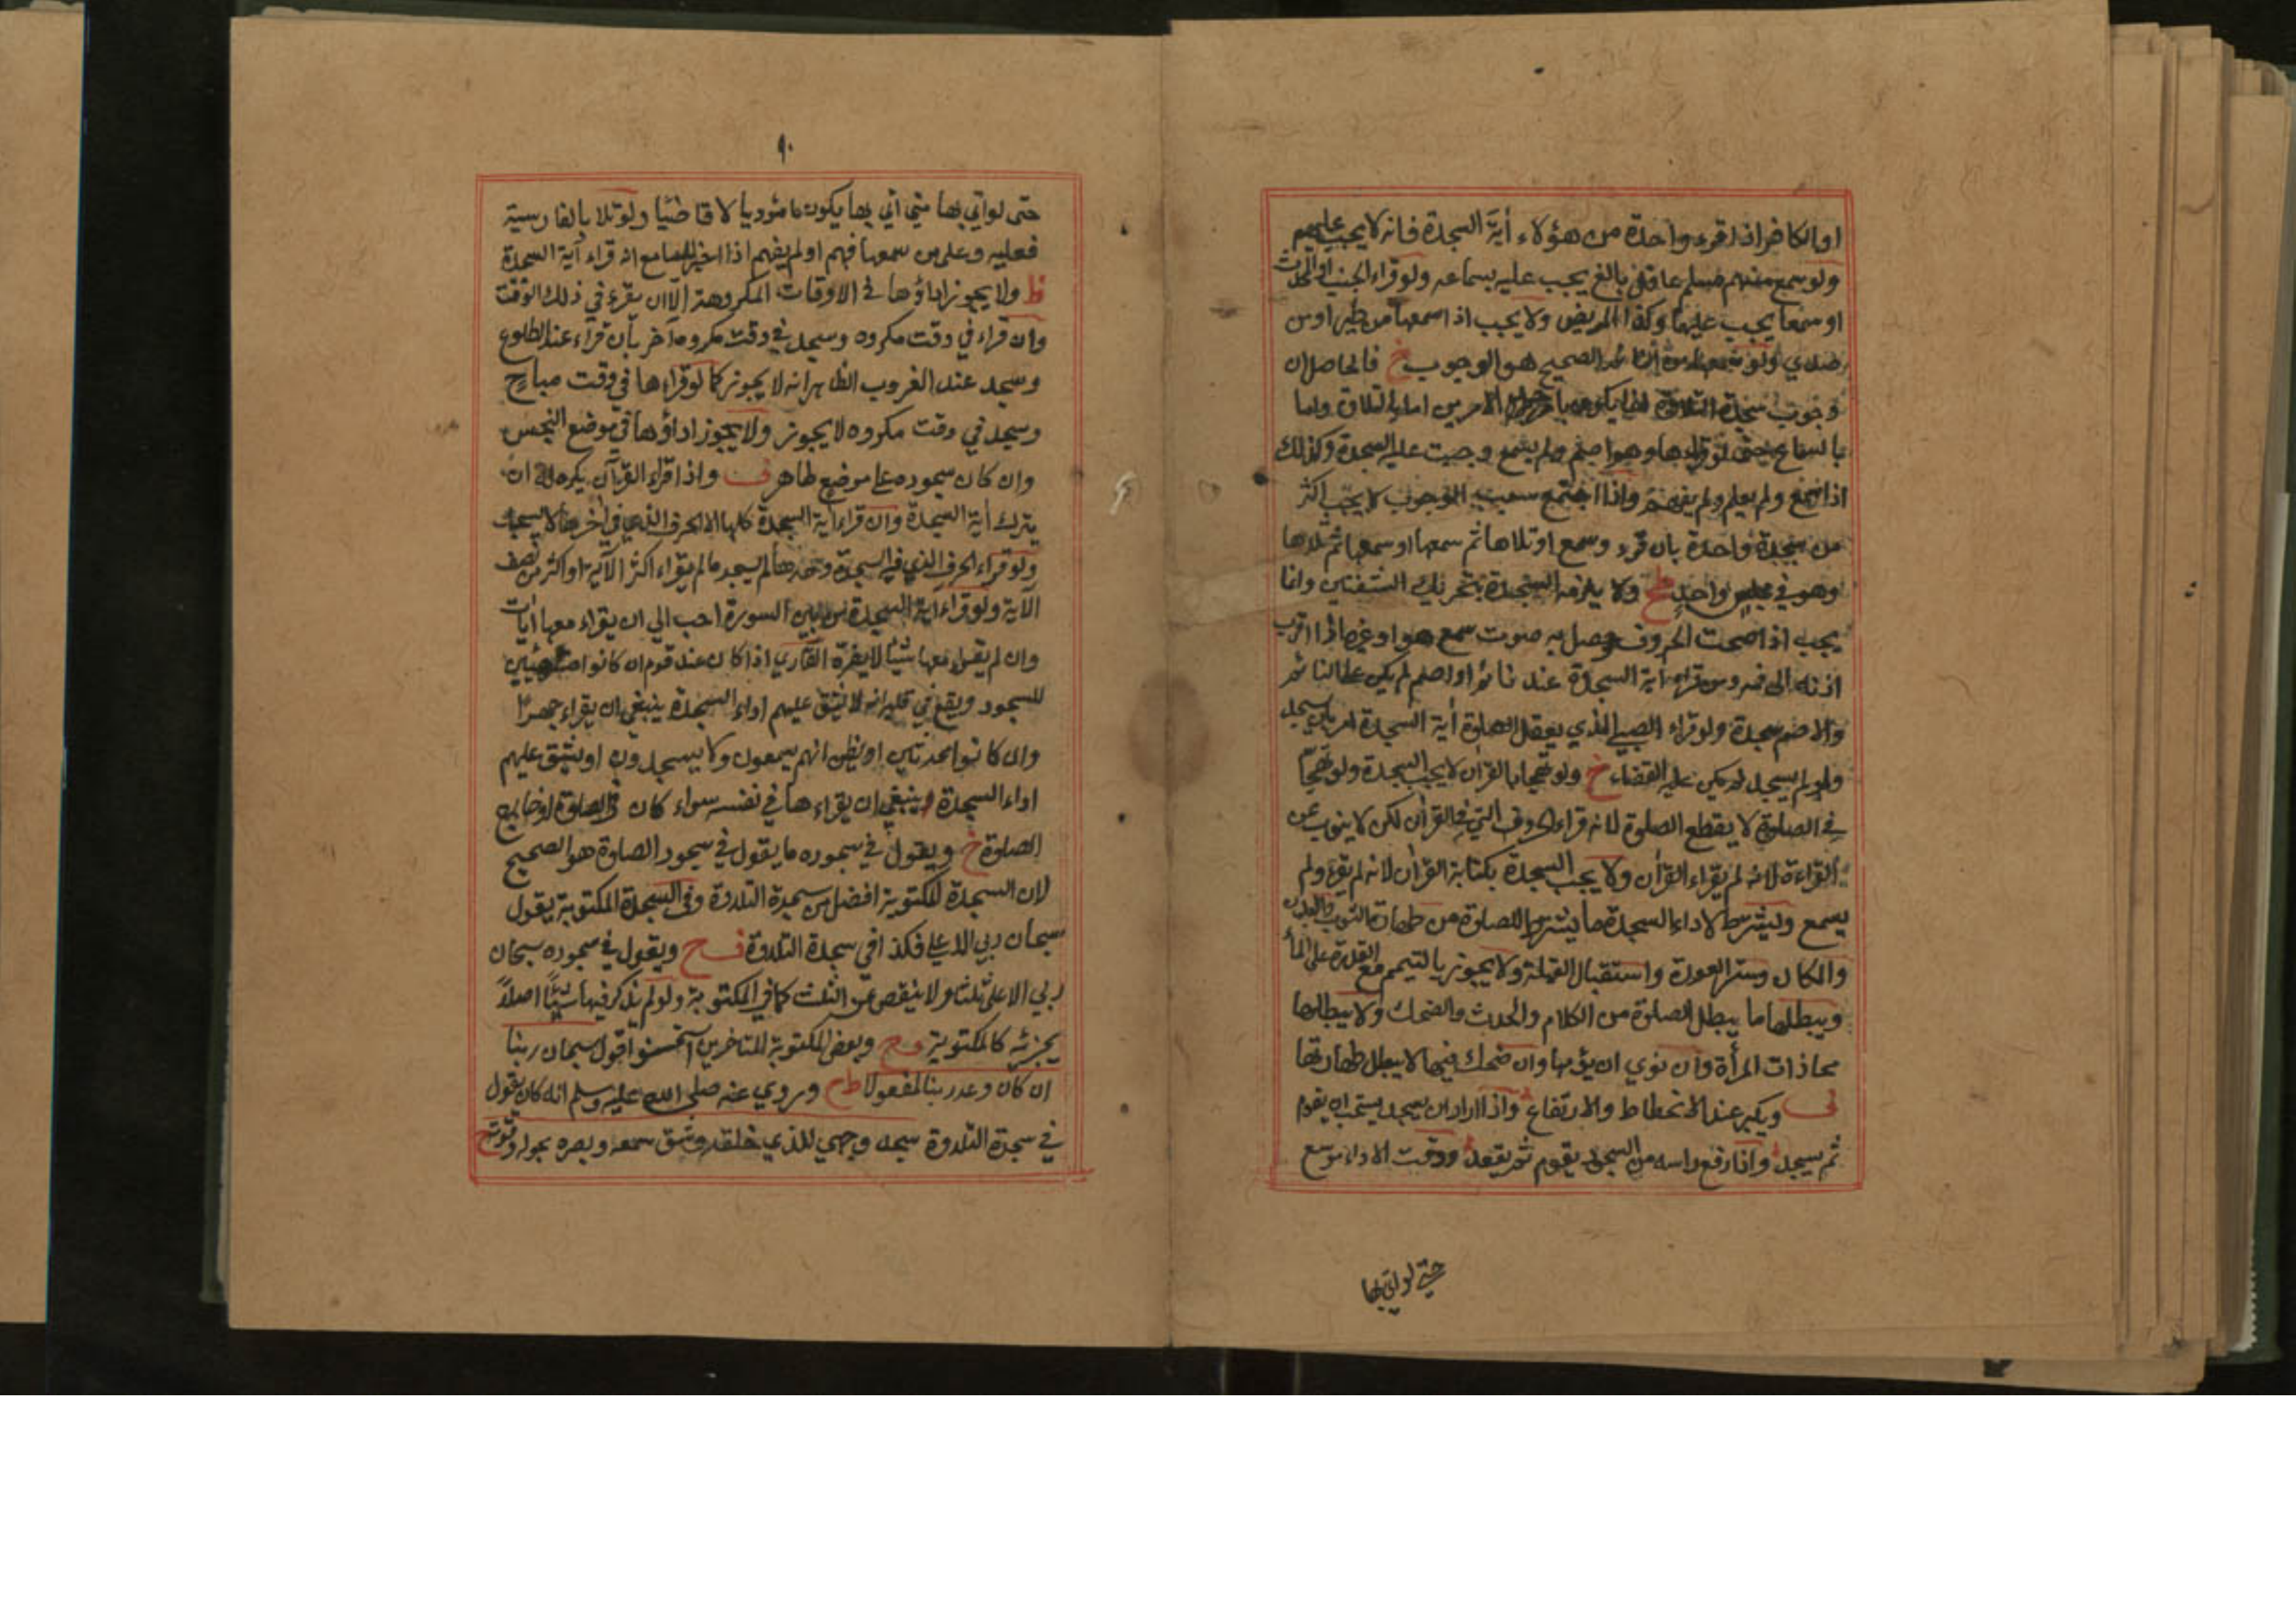 او الكافر اذا قرء واحدة من هؤلاء أية السجدة فانه لا يجب عليهم
ولو سمع منهم مسلم عاقل بالغ يجب عليه بسماعه ولو قراء الجنب او المحدث
او سمعا يجب عليهما وكذا المريض ولا يجب اذا سمعها من طير او من
صدي ولو سمعها من الصحيح هو الوجوب خ فالحاصل ان
وجوب سجدة التلاوة الامرين اما بالتلاوة واما
بالسماع حتى لو قراءها وهو اصم ولم يسمع وجبت عليه السجدة وكذلك
اذا سمع ولم يعلم ولم يفهم واذا اجتمع سبب الوجوب لا يجب اكثر
من سجدة واحدة بان قرء وسمع او تلاها ثم سمعها او سمعها ثم تلاها
وهو في مجلس واحد ولا يلزمه السجدة بتحريك الشفتين وانما
يجب اذا صحت الحروف وحصل به صوت سمع هو او غيره اذا قرب
اذنه الى فمه ومن قراء أية السجدة عند نائم او اصم لم يكن على النائم
والاصم سجدة ولو قراء الصبي الذي يعقل الصلوة أية السجدة امر بان يسجد
ولو لم يسجد لم يكن عليه القضاء خ ولو تهجا بالقرأن لا يجب السجدة ولو تهجا
في الصلوة لا يقطع الصلوة لانه قراء الحروف التي في القرأن لكن لا ينوب عن
القراءة لانه لم يقراء القرأن ولا يجب السجدة بكتابة القرأن لانه لم يقرء ولم
يسمع ويشترط لاداء السجدة ما يشترط للصلوة من طهارة الثوب والبدن
والمكان وستر العورة واستقبال القبلة ولا يجوز بالتيمم مع القدرة على الماء
ويبطلها ما يبطل الصلوة من الكلام والحدث والضحك ولا يبطلها
محاذات المرأة وان نوي ان يؤمها وان ضحك فيها لا يبطل طهارتها
ف ويكبر عند الانحطاط والارتفاع واذا اراد ان يسجد يستحب ان يقوم
ثم يسجد واذا رفع راسه من السجود يقوم ثم يقعد ووقت الاداء موسع
حتى لو اتي بها
٩٠
حتى لو اتي بها متي اتي بها يكون مؤديا لا قاضيا ولو تلا بالفارسية
فعليه وعلى من سمعها فهم او لم يفهم اذا اخبر السامع انه قراء آية السجدة
ظ ولا يجوز اداؤها في الاوقات المكروهة الا ان يقرء في ذلك الوقت
وان قراء في وقت مكروه وسجد في وقت مكروه آخر بأن قراء عند الطلوع
وسجد عند الغروب الظاهر انه لا يجوز كما لو قراءها في وقت مباح
وسجد في وقت مكروه لا يجوز ولا يجوز اداؤها في موضع النجس
وان كان سجوده على موضع طاهر ف واذا قراء القرآن يكره له ان
يترك أية السجدة وان قراء أية السجدة كلها الا الحرف الذي في آخرها لا يسجد
ولو قراء الحرف الذي فيه السجدة وحدها لم يسجد ما لم يقراء اكثر الآية او اكثر من نصف
الآية ولو قراء آية السجدة من بين السورة احب الي ان يقراء معها أيات
وان لم يقراء معها شيئا لا يضره القاري اذا كان عند قوم ان كانوا
للسجود ويقع في قلبه انه لا يشق عليهم اداء السجدة ينبغي ان يقراء جهرا
وان كانوا محدثين او يظن انهم يسمعون ولا يسجدون او يشق عليهم
اداء السجدة ينبغي ان يقراءها في نفسه سواء كان في الصلوة او خارج
الصلوة خ ويقول في سجوده ما يقول في سجود الصلوة هو الصحيح
لان السجدة المكتوبة افضل من سجدة التلاوة وفي السجدة المكتوبة يقول
سبحان ربي الاعلى فكذا في سجدة التلاوة ف ح ويقول في سجوده سبحان
ربي الاعلى ثلثا ولا ينقص عن الثلث كما في المكتوبة ولو لم يذكر فيها شيئا اصلا
يجزئه كالمكتوبة وبعض المتاخرين استحسنوا قول سبحان ربنا
ان كان وعد ربنا لمفعولا ط ح وروي عنه صلى الله عليه وسلم انه كان يقول
في سجدة التلاوة سجد وجهي للذي خلقه وشق سمعه وبصره بحوله وقوته